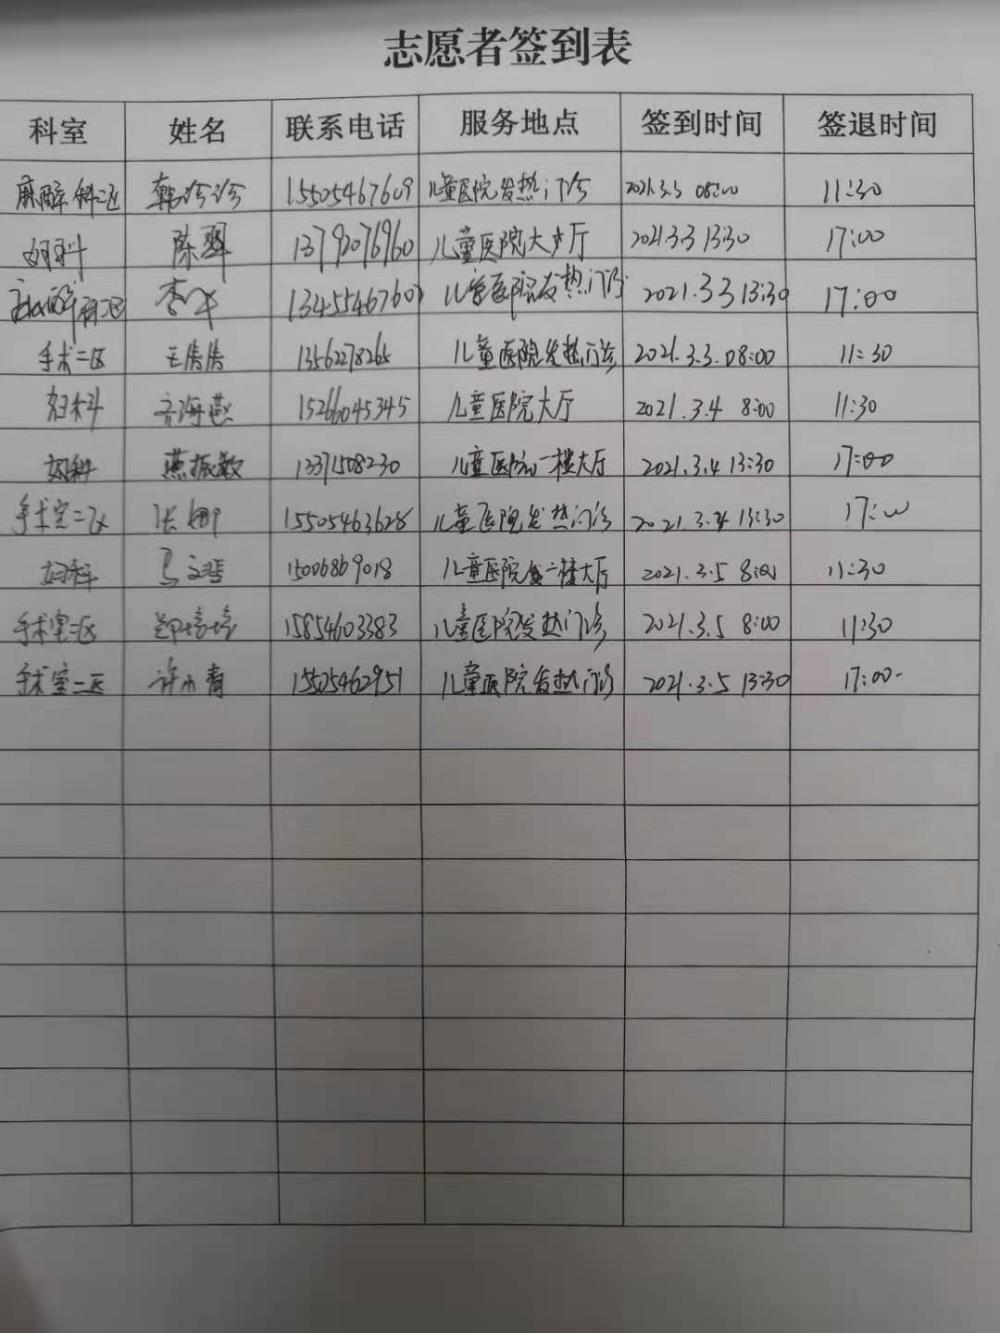 志愿者签到表
科室 姓名 联系电话 服务地点 签到时间 签退时间
麻醉科二区 韩冷冷 15505467609 儿童医院发热门诊 2021.3.3 08:00 11:30
妇科 陈翠 13792076960 儿童医院大广厅 2021.3.3 13:30 17:00
麻醉科二区 李 1345546760 儿童医院发热门诊 2021.3.3 13:30 17:00
手术二区 王倩倩 13562278265 儿童医院发热门诊 2021.3.3. 08:00 11:30
妇科 齐海燕 15266045345 儿童医院大厅 2021.3.4 8:00 11:30
妇科 燕振敏 13371508230 儿童医院一楼大厅 2021.3.4 13:30 17:00
手术室二区 张娜 15505463628 儿童医院发热门诊 2021.3.4 13:30 17:00
妇科 马文 15006869018 儿童医院二楼大厅 2021.3.5 8:00 11:30
手术室二区 郑培培 15854603383 儿童医院发热门诊 2021.3.5 8:00 11:30
手术室二区 许青 15505462951 儿童医院发热门诊 2021.3.5 13:30 17:00